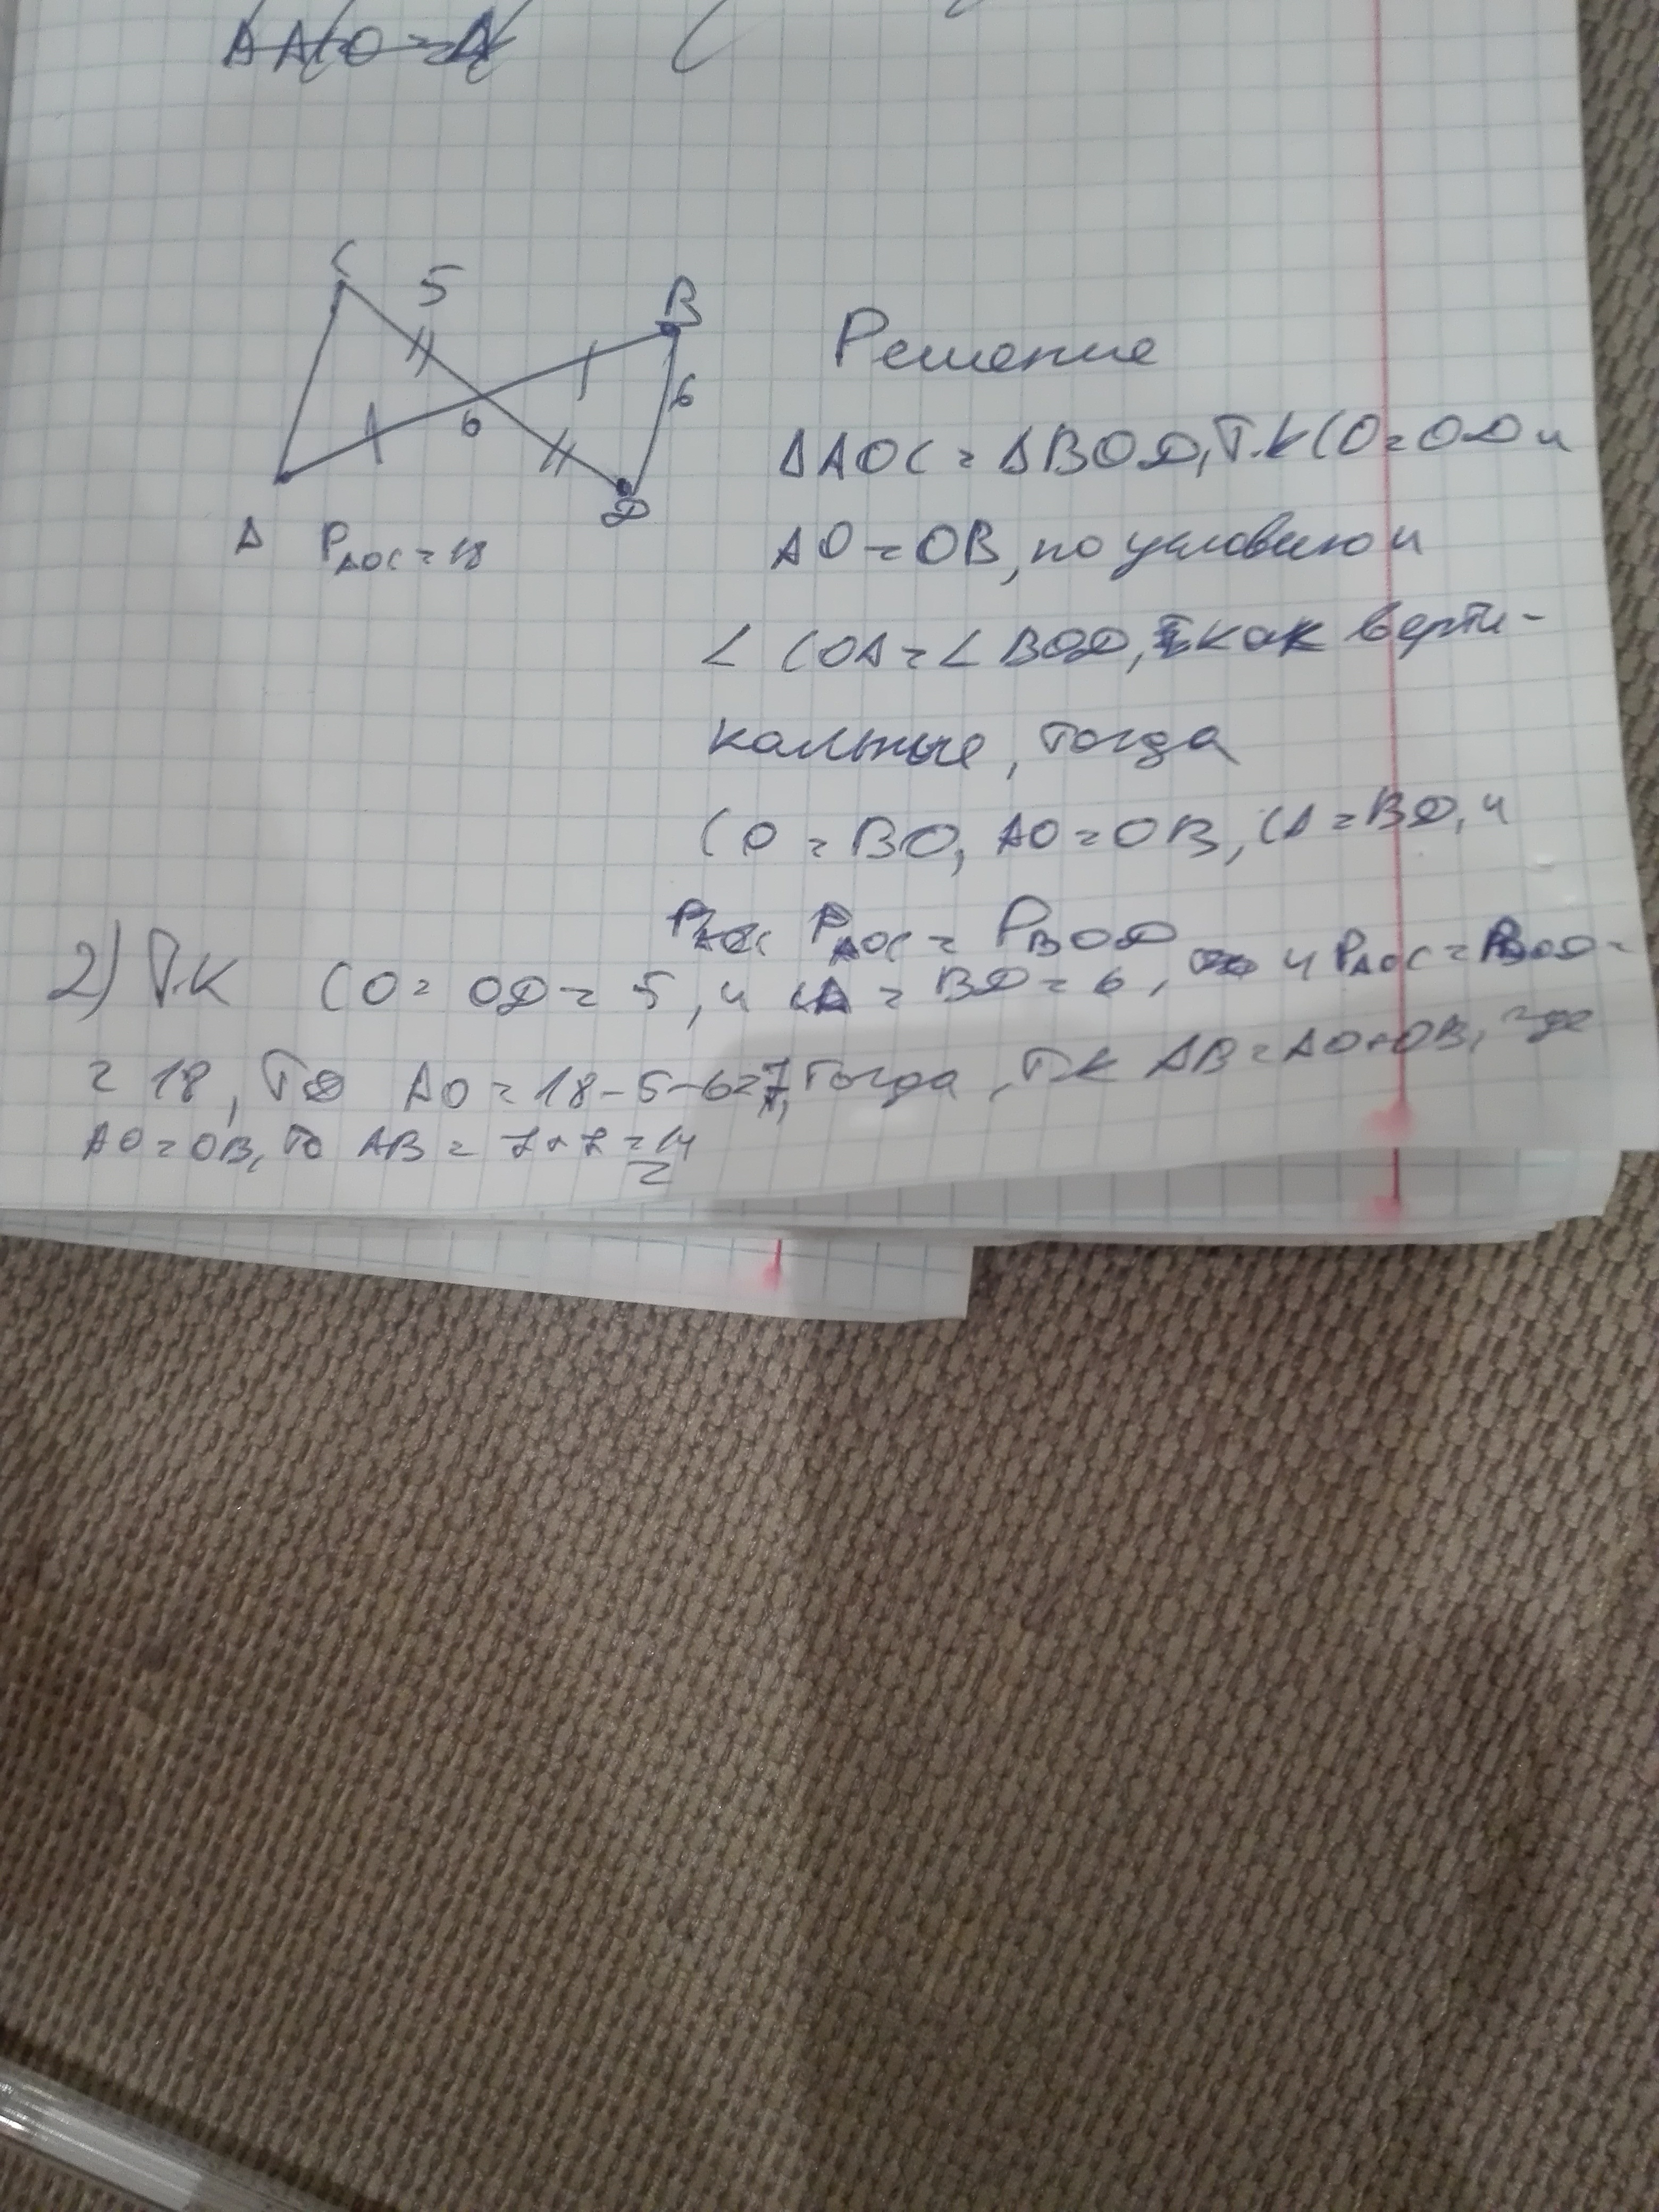 ΔACO = Δ
C
5
B
6
6
A
D
P AOC = 18
Решение
ΔAOC = ΔBOD, т.к CO = OD и
AO = OB, по условию и
∠ COA = ∠ BOD, как верти-
кальные, тогда
CO = BO, AO = OB, CA = BD, и
P AOC P AOC = P BOD
2) т.к CO = OD = 5, и CA = BD = 6, и P AOC = P BOD =
= 18, то AO = 18 - 5 - 6 = 7, тогда, т.к AB = AO + OB, где
AO = OB, то AB = 7 + 7 = 14